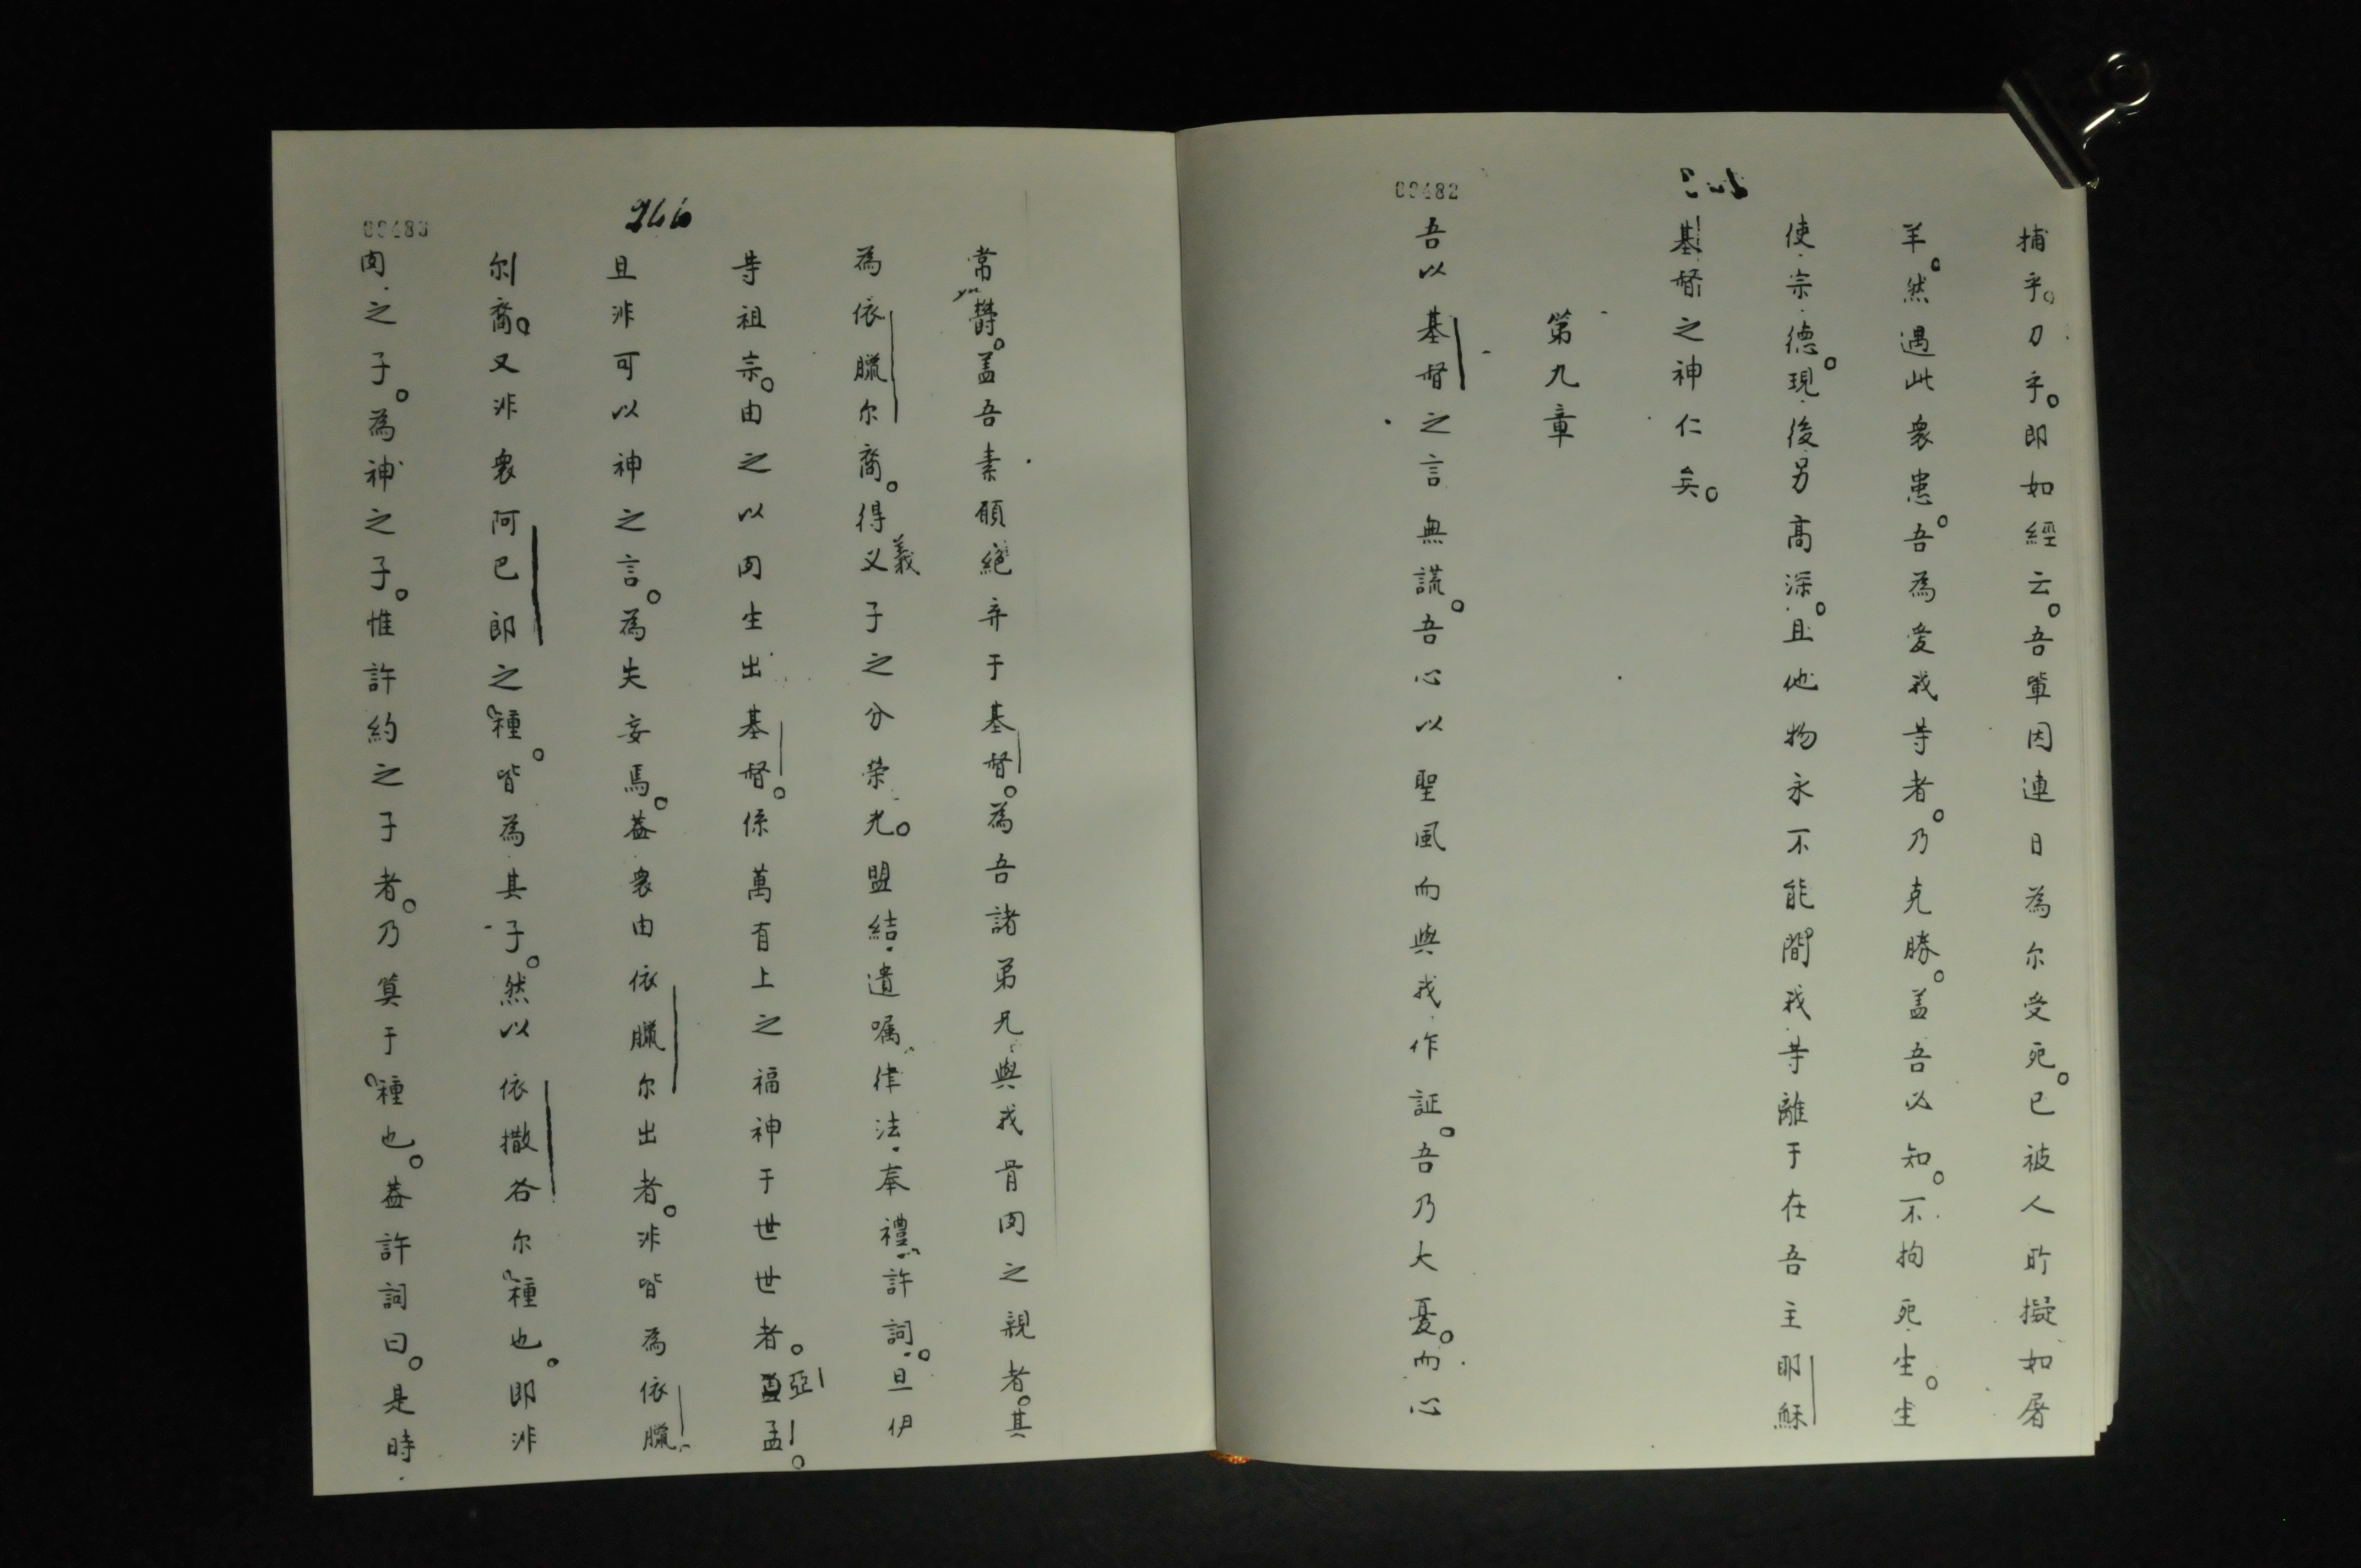 00482
捕乎。刀乎。即如經云。吾輩因連日為尔受死。已被人所擬如屠
羊。然遇此衆患。吾為愛我等者。乃克勝。盖吾以知。不拘死生。生
使宗德。現後另高深。且他物永不能間我等離于在吾主耶穌
基督之神仁矣。
第九章
吾以基督之言無謊。吾心以聖風而與我作証。吾乃大憂。而心
266
常鬱。盖吾素願絕弃于基督。為吾諸弟兄與我骨肉之親者。其
為依臘尔裔。得义義子之分榮光。盟結遺嘱律法奉禮許詞。旦伊
等祖宗。由之以肉生出基督。係萬有上之福神于世世者。亞孟。
且非可以神之言。為失妄焉。蓋衆由依臘尔出者。非皆為依臘
尔裔。又非衆阿巴郎之種。皆為其子。然以依撒各尔種也。即非
肉之子。為神之子。惟許約之子者。乃算于種也。蓋許詞曰。是時